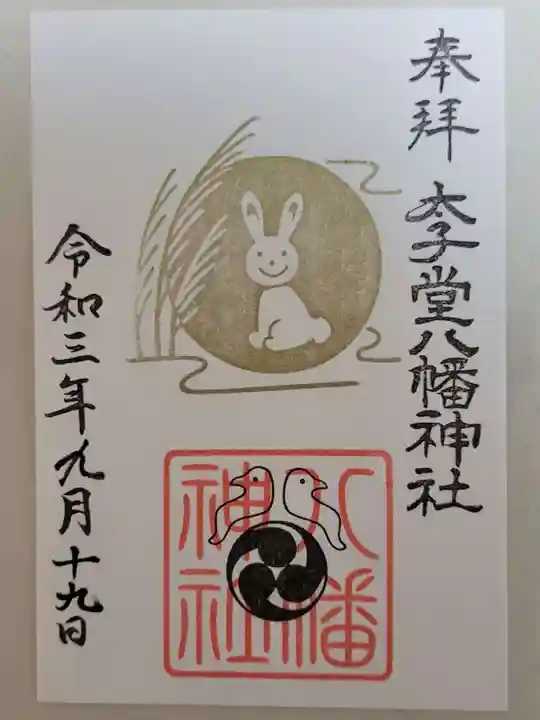 奉拝
太子堂八幡神社
八幡
神社
令和三年九月十九日